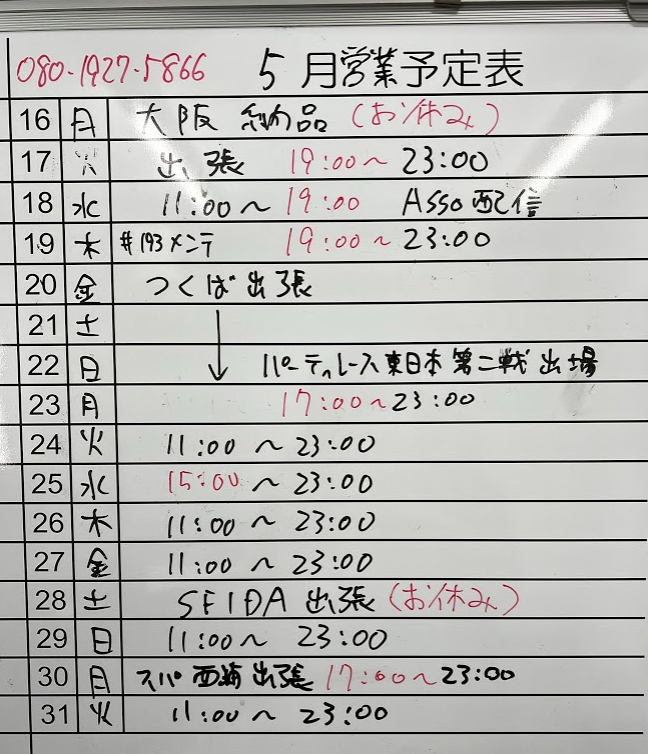 080-1927-5866 5月営業予定表
16 月 大阪 納品 (お休み)
17 火 出張 19:00〜23:00
18 水 11:00〜19:00 Asso配信
19 木 #193メンテ 19:00〜23:00
20 金 つくば出張
21 土
22 日 パーティレース東日本第二戦出場
23 月 17:00〜23:00
24 火 11:00〜23:00
25 水 15:00〜23:00
26 木 11:00〜23:00
27 金 11:00〜23:00
28 土 SEIDA 出張 (お休み)
29 日 11:00〜23:00
30 月 スパ西浦出張 17:00〜23:00
31 火 11:00〜23:00